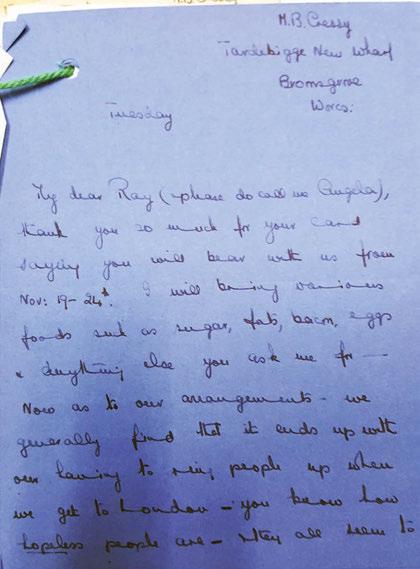 M.B. Cressy
Tardebigge New Wharf
Bromsgrove
Worcs:
Tuesday
My dear Ray (- please do call me Angela),
thank you so much for your card
saying you will bear with us from
Nov: 19 - 24th. I will bring various
foods such as sugar, fats, bacon, eggs
& anything else you ask me for —
Now as to our arrangements - we
generally find that it ends up with
our having to ring people up when
we get to London - you know how
hopeless people are - they all seem to